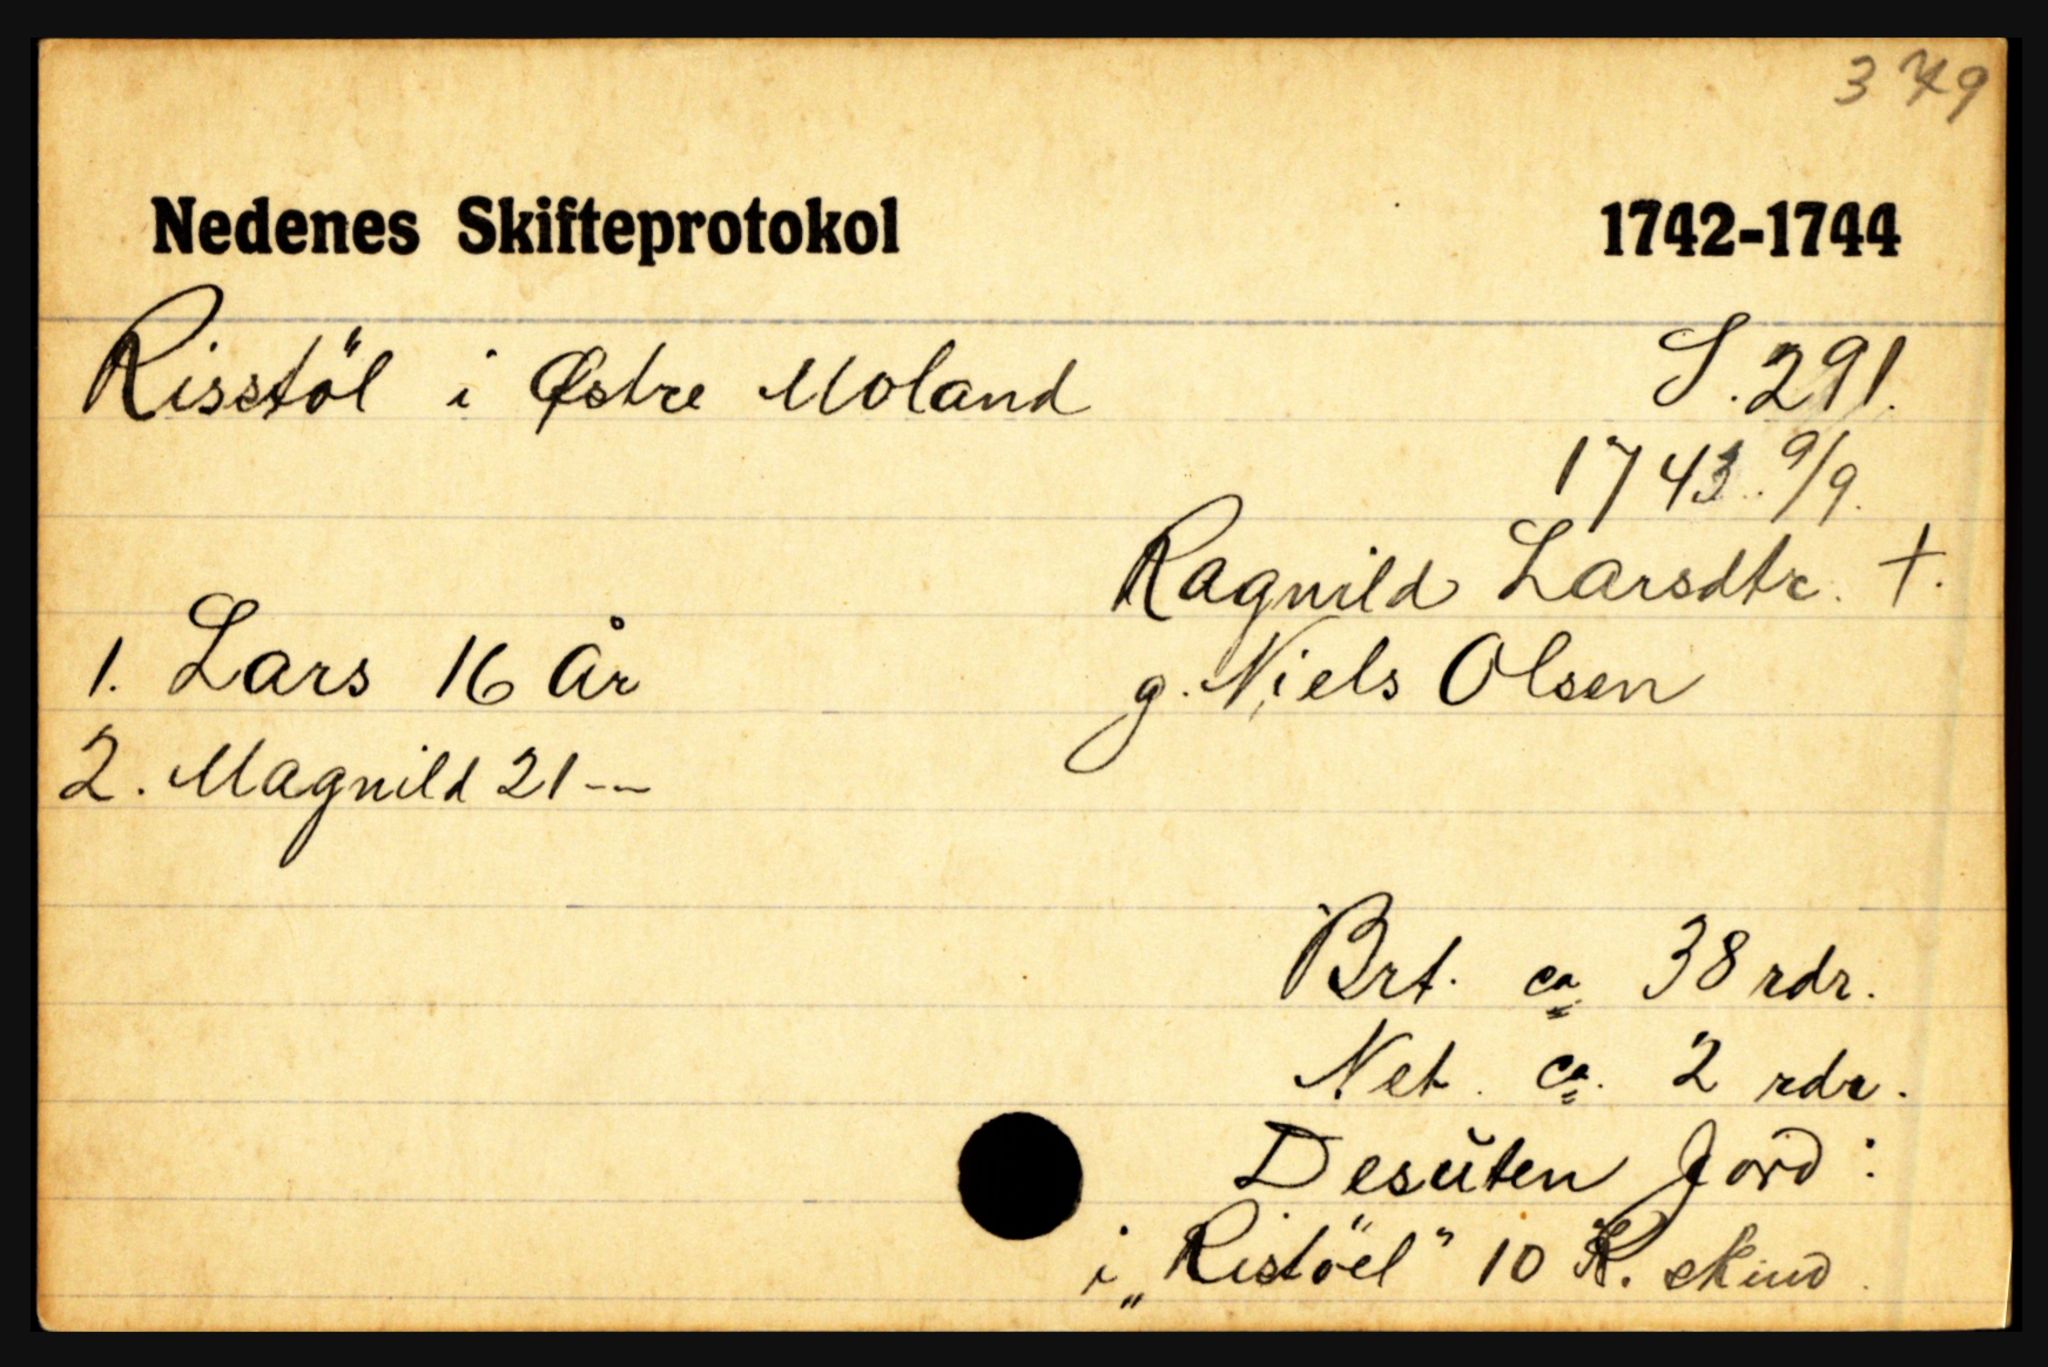 3 749
Nedenes Skifteprotokol 1742-1744
Risstöl i Østre Moland S. 291.
1743. 9/9.
Ragnild Larsdtr. †.
1. Lars 16 År g. Niels Olsen
2. Magnild 21 --
Brt. ca. 38 rdr.
Net. ca. 2 rdr.
Desŭten Jord:
i „Ristöel" 10 K. skind